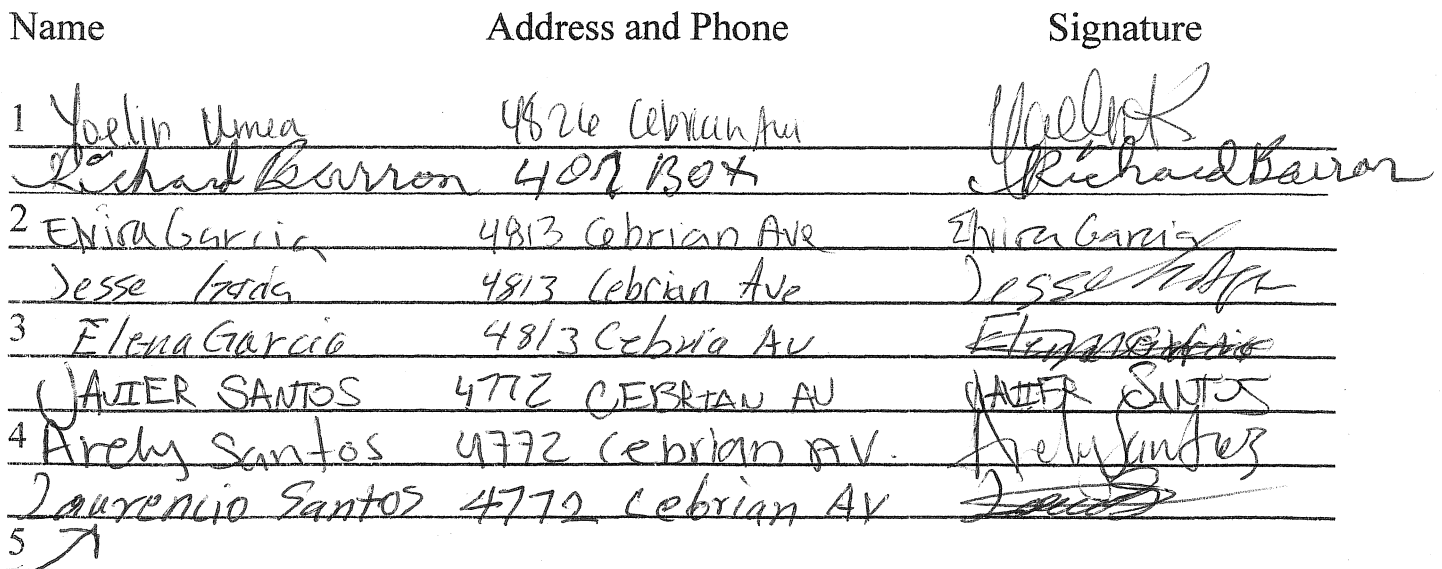 Name Address and Phone Signature
1 Yoelin Umea 4826 Cebrian Av
Richard Barron 407 BOX Richard Barron
2 Elvira Garcia 4813 Cebrian Ave Elvira Garcia
Jesse 4813 Cebrian Ave Jesse
3 Elena Garcia 4813 Cebria Av
JAVIER SANTOS 4772 CEBRIAN AV JAVIER SANTOS
4 Arely Santos 4772 Cebrian AV. Arely Santos
Laurencio Santos 4772 Cebrian AV
5